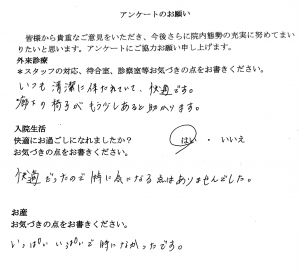 アンケートのお願い
皆様から貴重なご意見をいただき、今後さらに院内態勢の充実に努めてまい
りたいと思います。アンケートにご協力お願い申し上げます。
外来診療
*スタッフの対応、待合室、診察室等お気づきの点をお書きください。
いつも清潔に保たれていて、快適です。
廊下の椅子がもう少しあると助かります。
入院生活
快適にお過ごしになれましたか? はい ・ いいえ
お気づきの点をお書きください。
快適だったので特に気になる点はありませんでした。
お産
お気づきの点をお書きください。
いっぱいいっぱいで特になかったです。